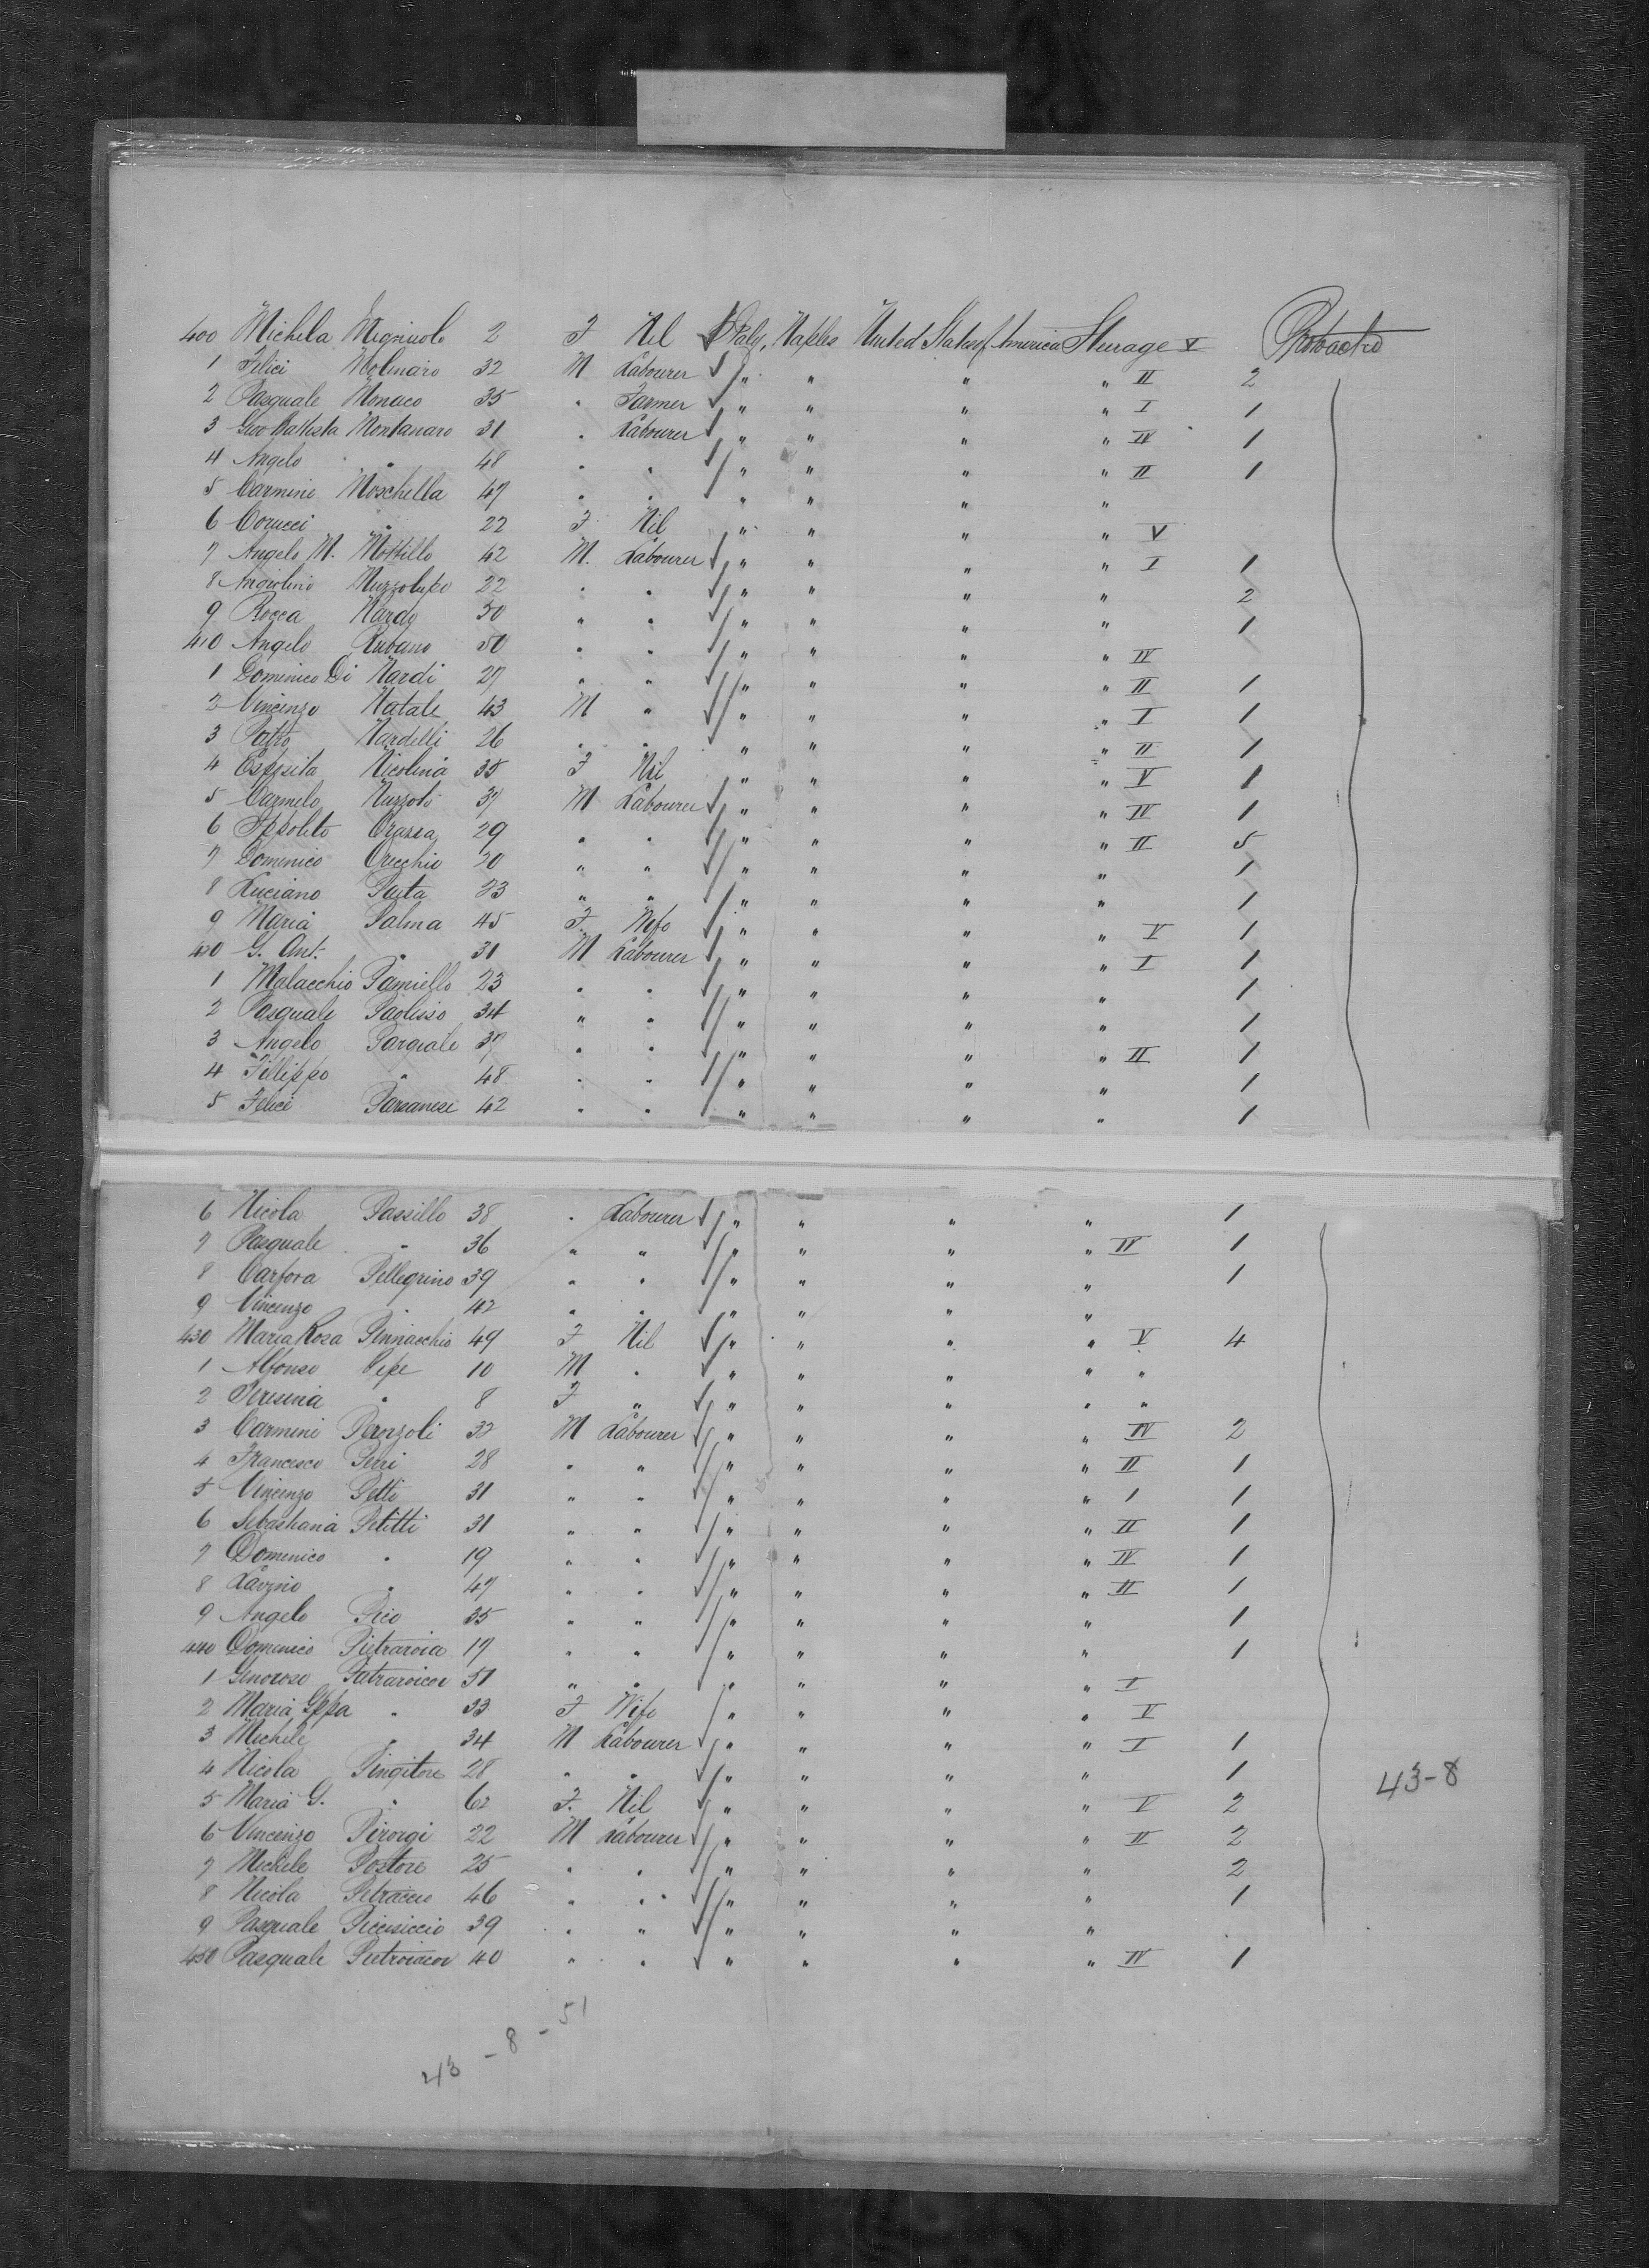 400 Michela Mignuolo 2 F Nil Italy, Naples United States of America Steerage V Protracted
1 Felici Molinaro 32 M Labourer " " " " II 2
2 Pasquale Monaco 35 " Farmer " " " " I 1
3 Gioo Battista Montanaro 31 " Labourer " " " " IV 1
4 Angelo " 48 " " " " " " II 1
5 Carmine Moschella 47 " " " " " "
6 Corucci " 22 F Nil " " " " V
7 Angelo M. Mottillo 42 M. Labourer " " " " I 1
8 Angiolino Muzzolupo 22 " " " " " " 2
9 Rocca Nardo 30 " " " " " " 1
410 Angelo Rubano 50 " " " " " " IV
1 Domenico Di Nardi 27 " " " " " " II 1
2 Vincenzo Natale 43 M " " " " " I 1
3 Patro Nardelli 26 " " " " " " II 1
4 Esposita Nicolina 35 F Nil " " " " V 1
5 Carmelo Nuzzolo 37 M Labourer " " " " IV 1
6 Ippolito Orassa 29 " " " " " " II 5
7 Dominico Orecchio 20 " " " " " " 1
8 Luciano Paeta 23 " " " " " " 1
9 Maria Palma 45 F. Wife " " " " V 1
420 G. Ant. " 31 M Labourer " " " " I 1
1 Malacchio Pamiello 23 " " " " " " 1
2 Pasquale Paolisso 34 " " " " " " 1
3 Angelo Pargiale 37 " " " " " " II 1
4 Fillippo " 48 " " " " " " 1
5 Felici Parsanese 42 " " " " " " 1
6 Nicola Passillo 38 " Labourer " " " " 1
7 Pasquale " 36 " " " " " " IV 1
8 Carfora Pellegrino 39 " " " " " " 1
9 Vincenzo " 42 " " " " " "
430 Maria Rosa Pinnacchio 49 F Nil " " " " V 4
1 Alfonso Pepe 10 M " " " " " "
2 Teresina " 8 F " " " " " "
3 Carmini Peorzoli 32 M Labourer " " " " IV 2
4 Francesco Perri 28 " " " " " " II 1
5 Vincenzo Petti 31 " " " " " " I 1
6 Sebastiana Petitti 31 " " " " " " II 1
7 Domenico " 19 " " " " " " IV 1
8 " 47 " " " " " " II 1
9 Angelo Pico 35 " " " " " " 1
440 Domenico Pietraroia 17 " " " " " " 1
1 Generoso Patraroicor 51 " " " " " " I
2 Maria Gppa " 33 F Wife " " " " V
3 Michele " 34 M Labourer " " " " I 1
4 Nicola Pingitore 28 " " " " " " 1
5 Maria G. " 62 F. Nil " " " " V 2
43-8
6 Vincenzo Pirorgi 22 M Labourer " " " " II 2
7 Michele Postore 25 " " " " " " 2
8 Nicola Petraccio 46 " " " " " " 1
9 Pasquale Piccisiccio 39 " " " " " "
450 Pasquale Pietroiacor 40 " " " " " " IV 1
43 - 8 - 51